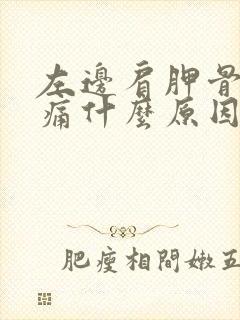 左邊肩胛骨
痛什麼原因
肥瘦相間嫩五